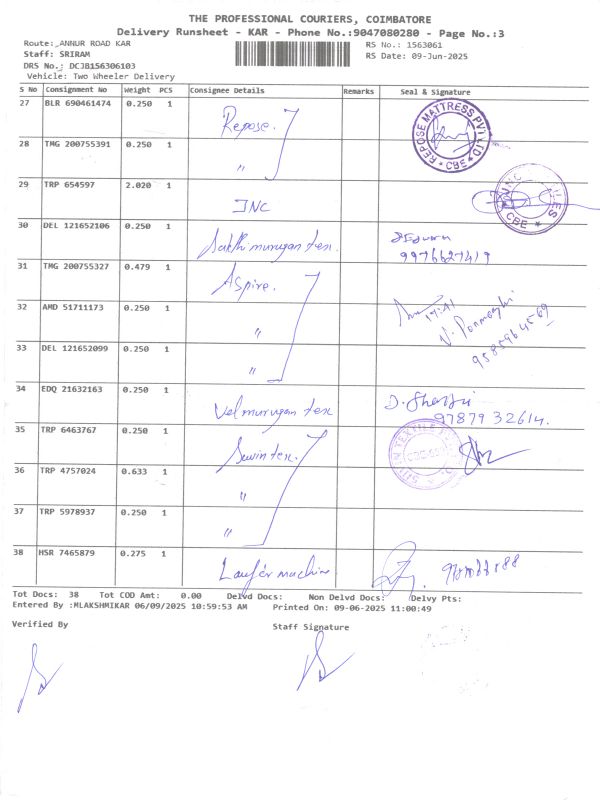 THE PROFESSIONAL COURIERS, COIMBATORE
Delivery Runsheet - KAR - Phone No.:9047080280 - Page No.:3
Route: ANNUR ROAD KAR RS No.: 1563061
Staff: SRIRAM RS Date: 09-Jun-2025
DRS No.: DCJB156306103
Vehicle: Two Wheeler Delivery
S No Consignment No Weight PCS Consignee Details Remarks Seal & Signature
27 BLR 690461474 0.250 1 Repose. REPOSE MATTRESS PVT LTD * CBE *
28 TMG 200755391 0.250 1 "
29 TRP 654597 2.020 1 JNC * CBE *
30 DEL 121652106 0.250 1 Sakthi murugan tex.
31 TMG 200755327 0.479 1 Aspire.
32 AMD 51711173 0.250 1 " 17:41
33 DEL 121652099 0.250 1 " 9585964569
34 EDQ 21632163 0.250 1 Velmurugan tex 9787932614.
35 TRP 6463767 0.250 1
36 TRP 4757024 0.633 1 "
37 TRP 5978937 0.250 1 "
38 HSR 7465879 0.275 1 machine
Tot Docs: 38 Tot COD Amt: 0.00 Delvd Docs: Non Delvd Docs: Delvy Pts:
Entered By :MLAKSHMIKAR 06/09/2025 10:59:53 AM Printed On: 09-06-2025 11:00:49
Verified By Staff Signature